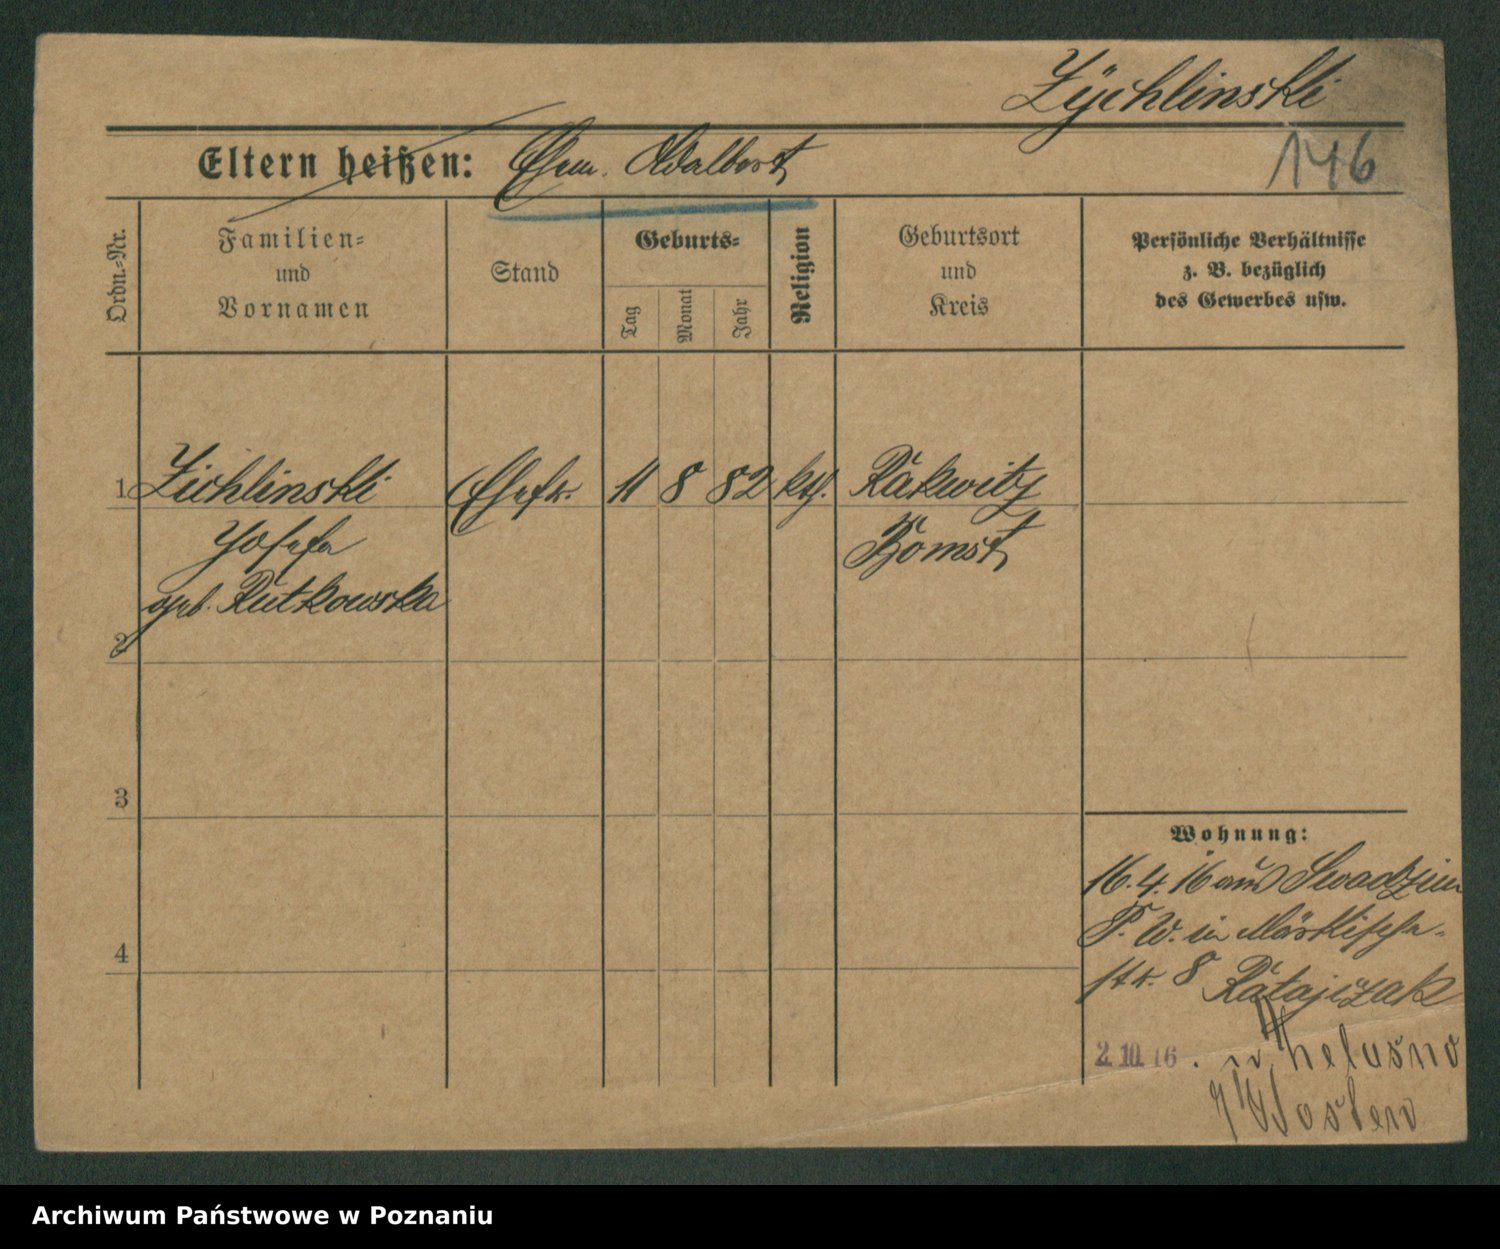 Zÿchlinski
146
Eltern heißen: Ehem. Adalbert
Ordn.-Nr.
Familien-
und
Vornamen
Stand
Geburts-
Tag
Monat
Jahr
Religion
Geburtsort
und
Kreis
Persönliche Verhältnisse
z. B. bezüglich
des Gewerbes usw.
1 Zichlinski Ehefr. 11 8 82 kth. Rakwitz
Josefa Bomst
geb. Rutkowska
2
3
4
Wohnung:
16.4.16 aus Swadzim
P. W. in Märkische-
str. 8 Ratajczak
2.10.16.
Archiwum Państwowe w Poznaniu